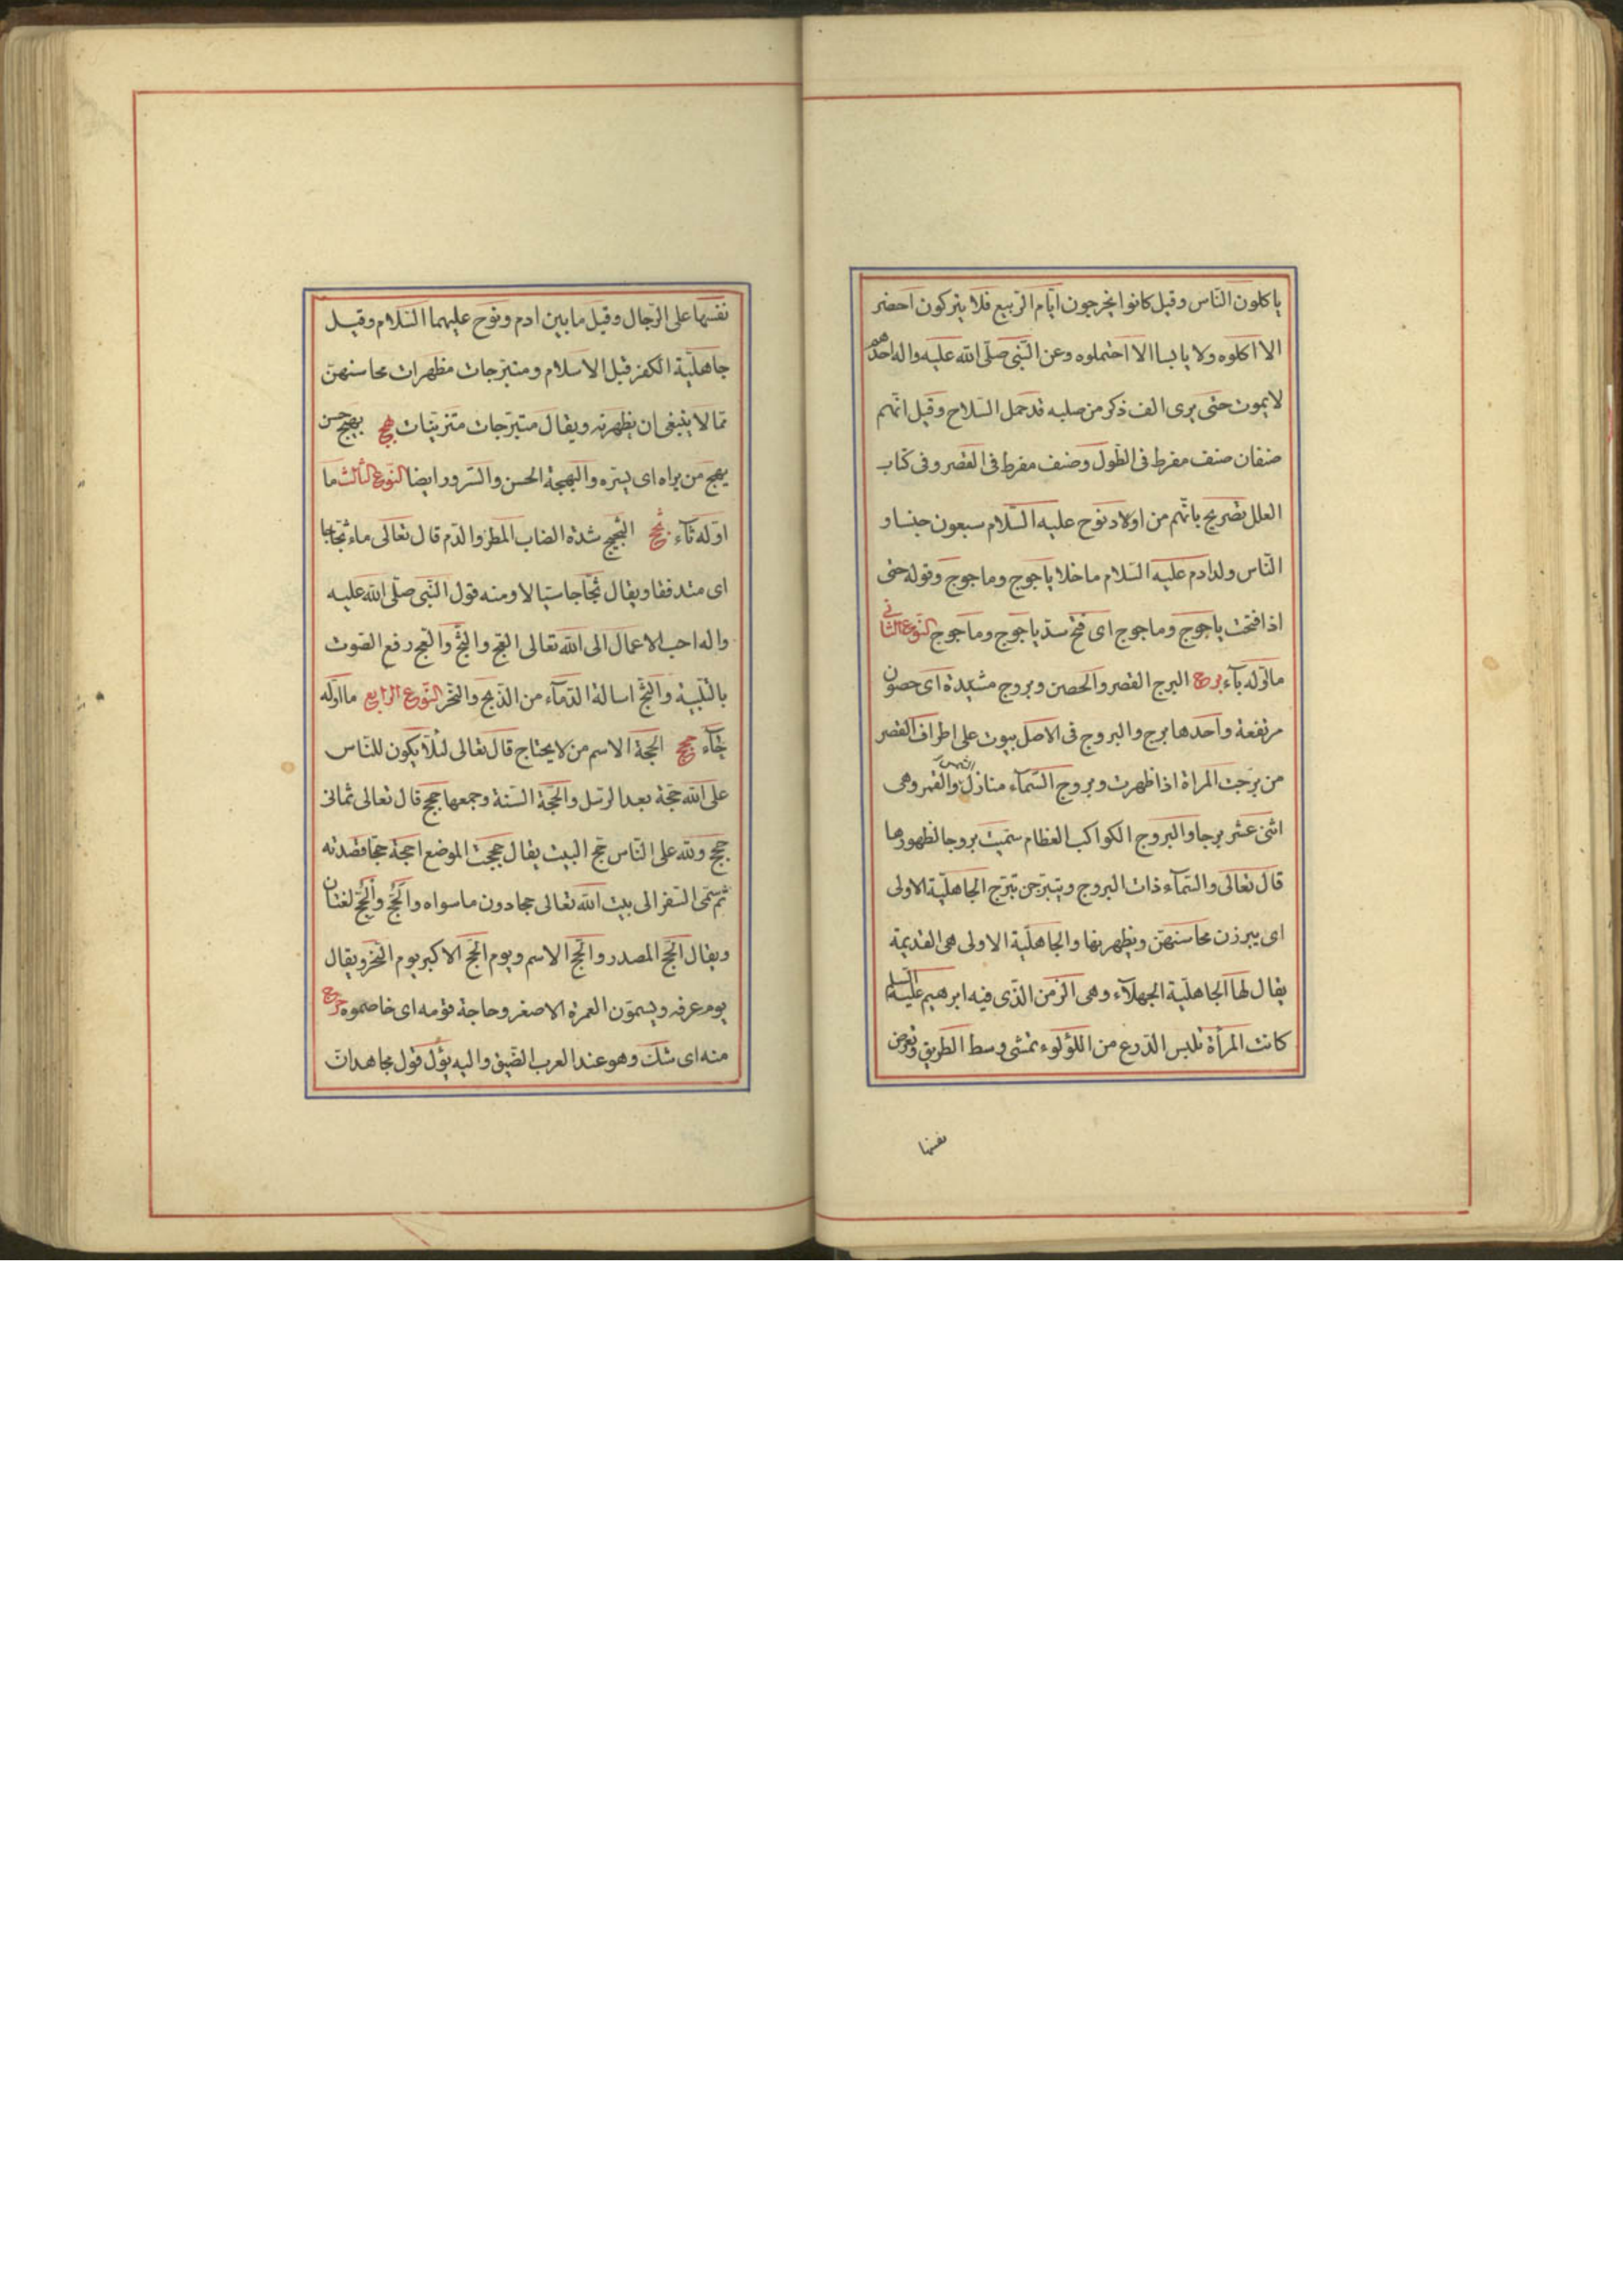 ياكلون الناس وقيل كانوا يخرجون ايام الربيع فلا يتركون اخضر
الا اكلوه ولا يابسا الا احتملوه وعن النبى صلى الله عليه واله احدهم
لا يموت حتى يرى الف ذكر من صلبه قد حمل السلاح وقيل انهم
صنفان صنف مفرط فى الطول وصنف مفرط فى القصر وفى كتاب
العلل تصريح بانهم من اولاد نوح عليه السلام سبعون جنسا و
الناس ولد ادم عليه السلام ما خلا ياجوج وماجوج وقوله حتى
اذا فتحت ياجوج وماجوج اى فتح سد ياجوج وماجوج النوع الثانى
ما اوله باء برج البرج القصر والحصن وبروج مشيدة اى حصون
مرتفعة واحدها برج والبروج فى الاصل بيوت على اطراف القصر
من برجت المراة اذا ظهرت وبروج السماء منازل الشمس والقمر وهى
اثنى عشر برجا والبروج الكواكب العظام سميت بروجا لظهورها
قال تعالى والسماء ذات البروج ويتبرجن تبرج الجاهلية الاولى
اى يبرزن محاسنهن ويظهرنها والجاهلية الاولى هى القديمة
يقال لها الجاهلية الجهلاء وهى الزمن الذى فيه ابرهيم عليه السلم
كانت المرأة تلبس الدرع من اللؤلوء تمشى وسط الطريق وتعرض
نفسها
نفسها على الرجال وقيل ما بين ادم ونوح عليهما السلام وقيل
جاهلية الكفر قبل الاسلام ومتبرجات مظهرات محاسنهن
مما لا ينبغى ان يظهرنه ويقال متبرجات متزينات بهج بهيج حسن
يبهج من يراه اى يسره والبهجة الحسن والسرور ايضا النوع الثالث ما
اوله ثاء ثج الثجيج شدة انصاب المطر والدم قال تعالى ماء ثجاجا
اى متدفقا ويقال ثجاجا سيالا ومنه قول النبى صلى الله عليه
واله احب الاعمال الى الله تعالى العج والثج والعج رفع الصوت
بالتلبية والثج اسالة الدماء من الذبح والنحر النوع الرابع ما اوله
حاء حج الحجة الاسم من لا يحتاج قال تعالى لئلا يكون للناس
على الله حجة بعد الرسل والحجة السنة وجمعها حجج قال تعالى ثمانى
حجج ولله على الناس حج البيت يقال حججت الموضع احجة حجا قصدته
ثم سمى السفر الى بيت الله تعالى حجا دون ما سواه والحج والحج لغتان
ويقال الحج المصدر والحج الاسم ويوم الحج الاكبر يوم النحر ويقال
يوم عرفه ويسمون العمرة الاصغر وحاجة قومه اى خاصموه حرج
منه اى شك وهو عند العرب الضيق واليه يؤل قول مجاهد ان